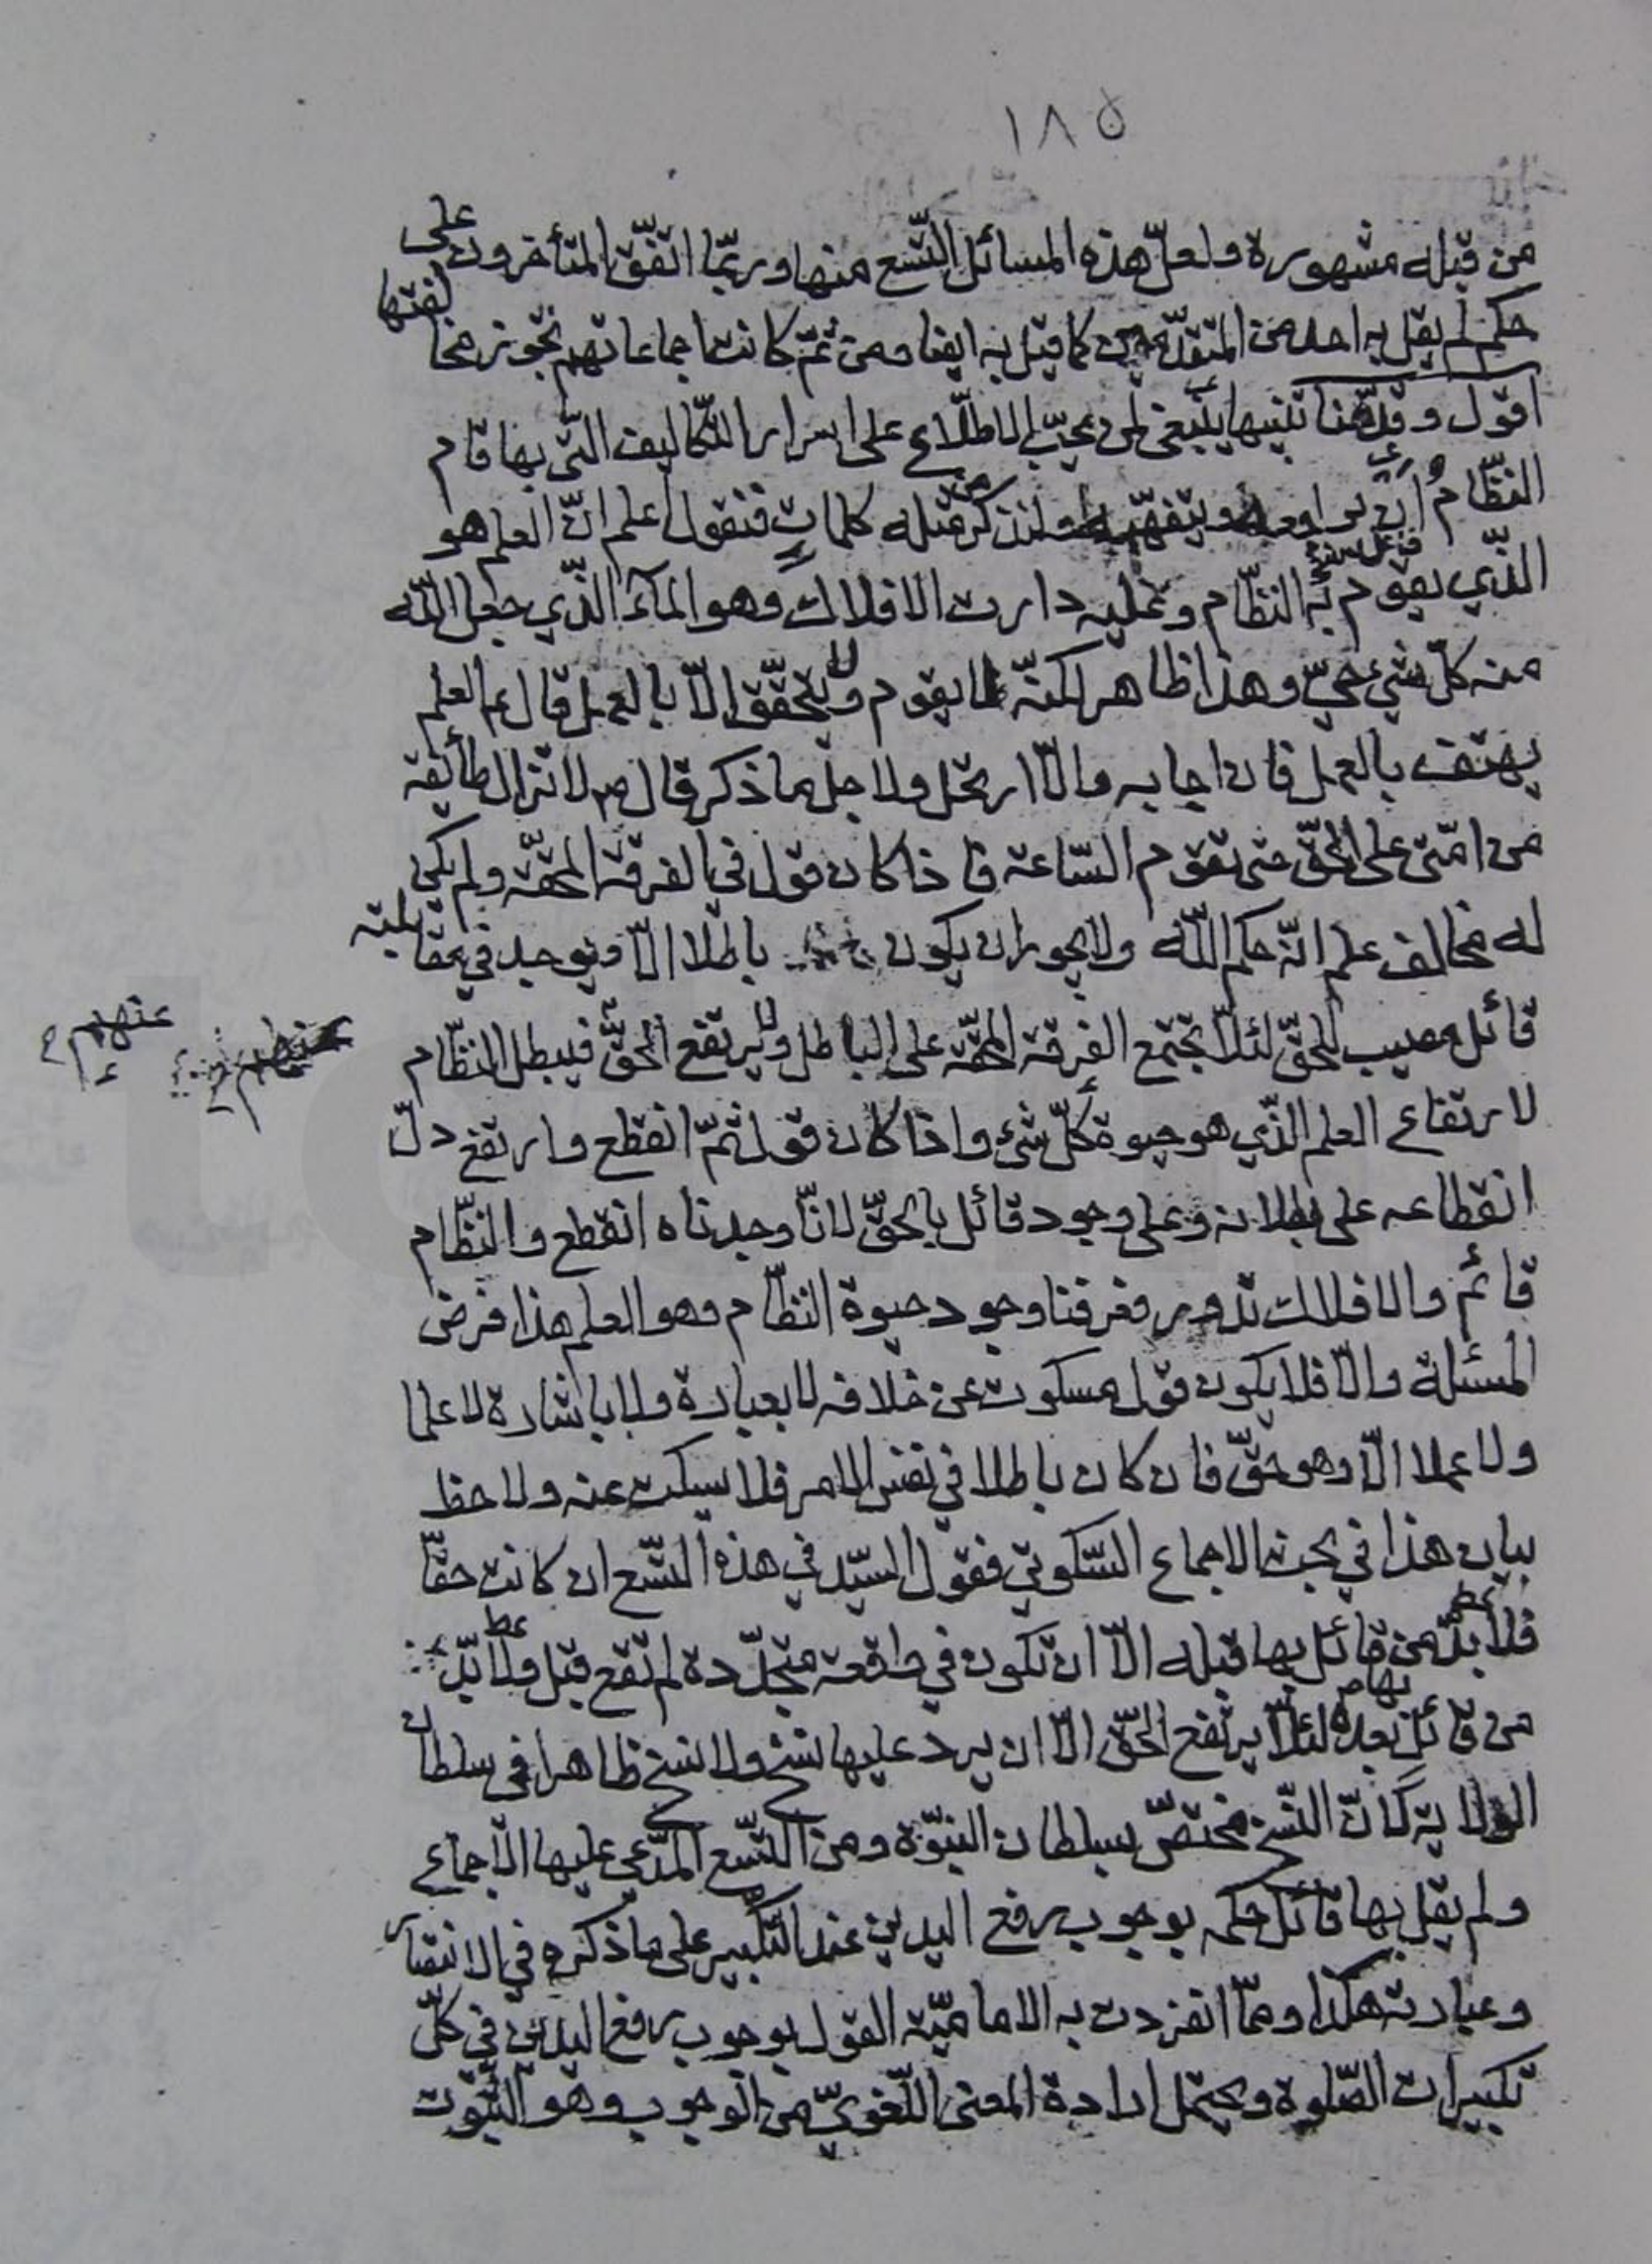 ١٨٥
من قبله مشهورة ولعلّ هذه المسائل التّسع منها وربّما اتّفق المتأخرون على
حكم لم يقل به احد من المتقدّمين كما قيل به ايضا ومن ثمّ كانت اجماعاتهم تجوز مخالفتها
اقول و هنا تنبيها ينبغي لمن يحبّ الاطّلاع على اسرار التّكاليف الّتي بها قام
النظّام ان ويتفهّمه ولنذكر قبله كلمات فنقول اعلم انّ العلم هو
الّذي يقوم به النظّام وعليه دارت الافلاك وهو الماء الّذي جعل اللّه
منه كلّ شيء حيّ وهذا ظاهر لكنّه لا يقوم ولا يتحقّق الّا بالعمل قال ع العلم
يهتف بالعمل فان اجابه والّا ارتحل ولاجل ما ذكر قال ص لا تزال طائفة
من امّتي على الحقّ حتى تقوم السّاعة فاذا كان قول في الفرقة المحقّة ولم يكن
له مخالف علم انّه حكم اللّه ولا يجوز ان يكون باطلا الّا ويوجد في مقابلته
قائل مصيب للحقّ لئلّا تجتمع الفرقة المحقّة على الباطل ولا يرتفع الحقّ فيبطل النظّام
عنهم
لارتفاع العلم الّذي هو حيوة كلّ شئ واذا كان قول ثمّ انقطع وارتفع دلّ
انقطاعه على بطلانه وعلى وجود قائل بالحقّ لانّا وجدناه انقطع والنظّام
قائم والافلاك تدور فعرفنا وجود حيوة النظّام وهو العلم هذا فرض
المسئلة والّا فلا يكون قول مسكوت عن خلافه لا بعبارة ولا باشارة لا علما
ولا عملا الّا وهو حقّ فان كان باطلا في نفس الامر فلا يسكت عنه ولاحظ
بيان هذا في بحث الاجماع السّكوتي فقول السيّد في هذه التّسع ان كانت حقّا
فلا بدّ من قائل بها قبله الّا ان تكون في واقعة متجدّدة لم تقع قبل ولا بدّ
من قائل بها بعده لئلّا يرتفع الحقّ الّا ان يرد عليها نسخ ولا نسخ ظاهرا في سلطان
الولاية لانّ النّسخ مختصّ بسلطان النبوّة ومن التّسع المدّعى عليها الاجماع
ولم يقل بها قائل حكمه بوجوب رفع اليدين عند التكبير على ما ذكره في الانتصار
وعبارته هكذا وممّا انفردت به الاماميّة القول بوجوب رفع اليدين في كلّ
تكبيرات الصّلوة ويحتمل ارادة المعنى اللّغويّ من الوجوب وهو الثّبوت